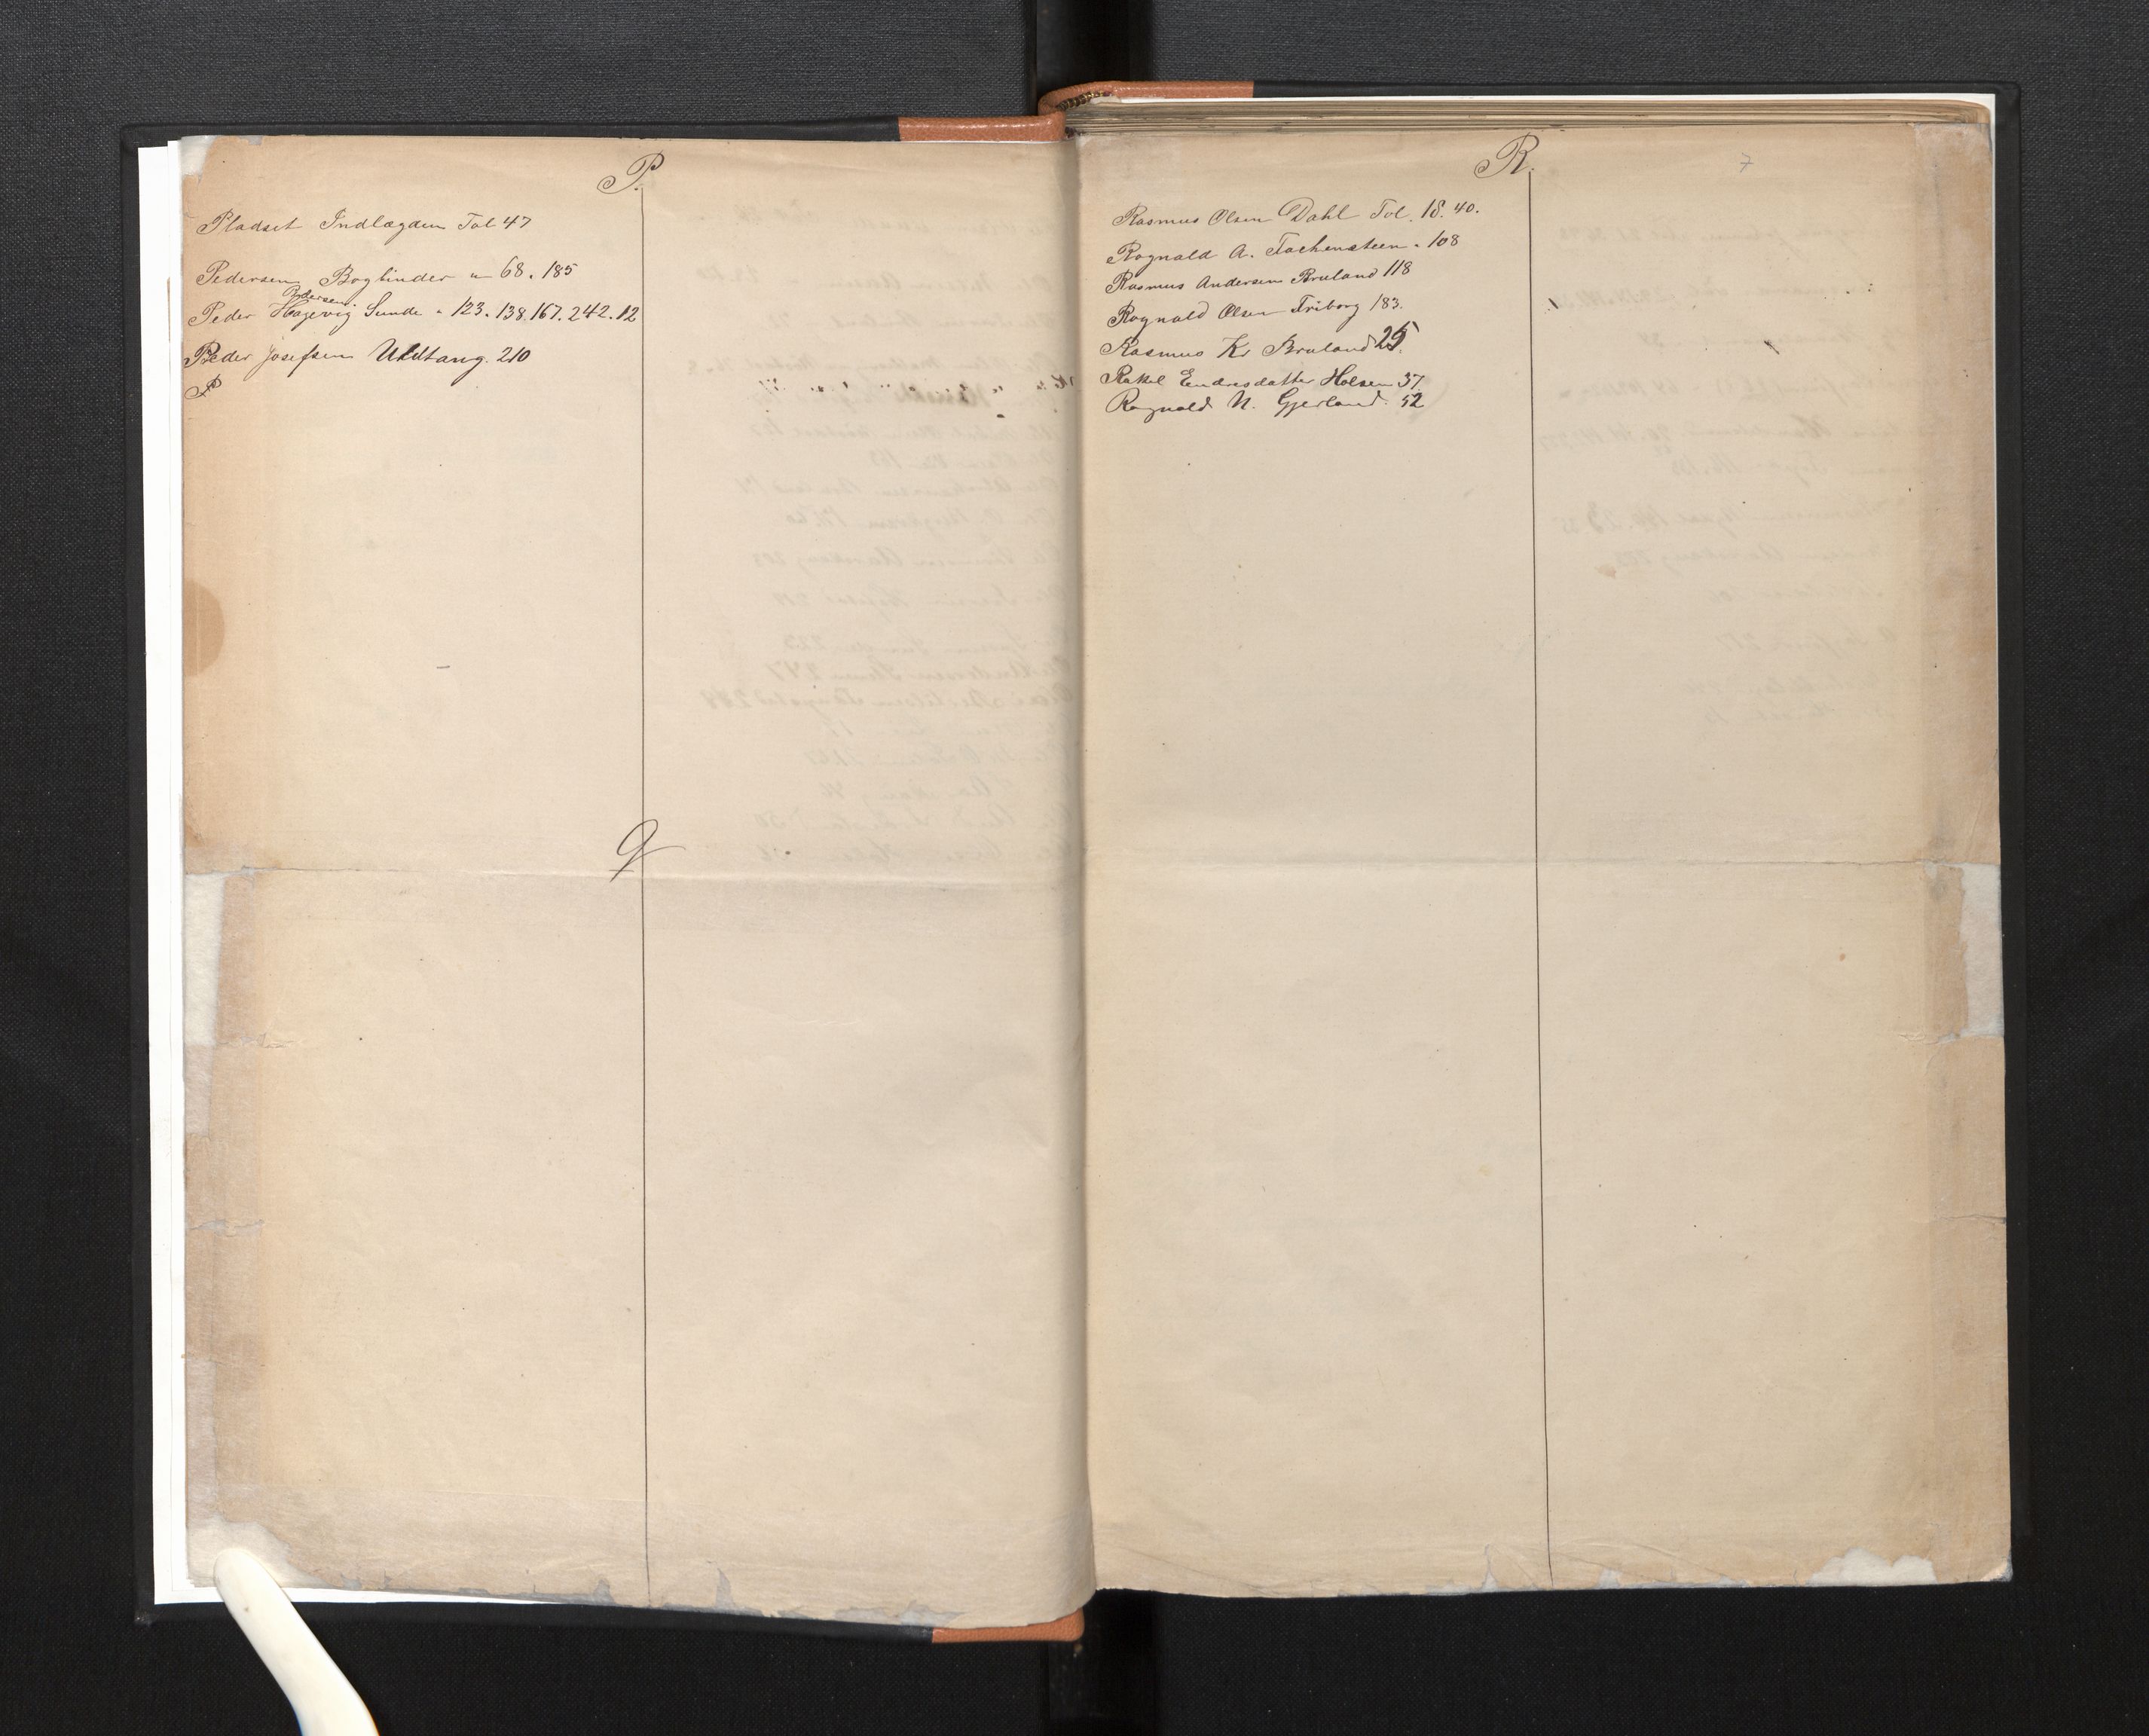 P.
Pladset Indlægden Fol 47
Pedersen Bogbinder " 68. 185
Pedersen
Peder Hagevig Sunde " 123. 138. 167. 242. 12
Peder Josefsen 210
P
Q
R.
7
Rasmus Olsen Dahl Fol. 18. 40.
Ragnald A. " 108
Rasmus Andersen Bruland 118
Ragnald Olsen Friborg 183.
Rasmus Kr Bruland 25.
Rakel Endresdatter Holsen 37
Ragnald N. Gjerland. 52